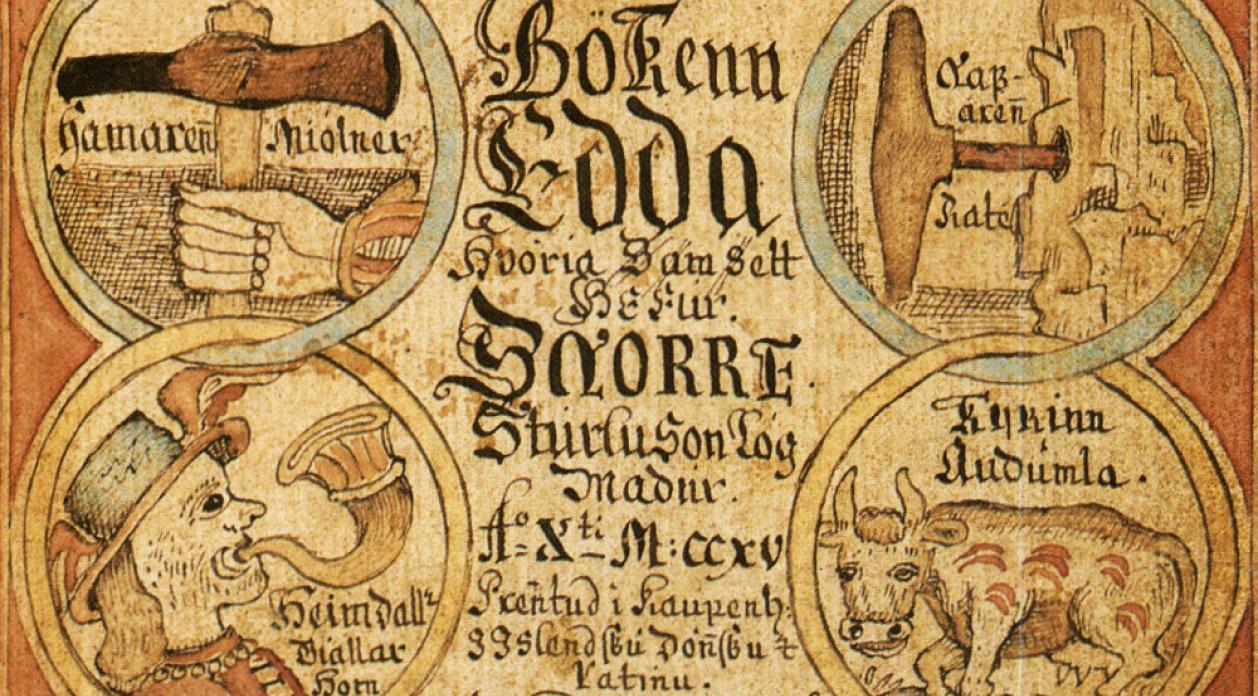 Hamarenn Miölner
Bökenn
Edda
Hvöria Sam Sett
Hefur.
SNORRE
Sturluson Lög
Madur.
Ao Xti M:CCXV
Prentud i Kaupenh:
Islendsku Dönsku &
Latinu.
Nafarenn
Rate
Heimdallr
Giallar
Horn
Kyrinn
Audumla.